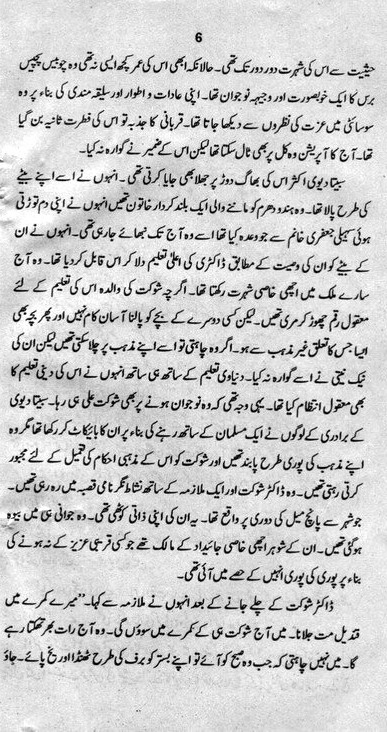 6
حیثیت سے اس کی شہرت دور دور تک تھی۔ حالانکہ ابھی اس کی عمر کچھ ایسی نہ تھی وہ چوبیس پچیس
برس کا ایک خوبصورت اور وجیہہ نوجوان تھا۔ اپنی عادات و اطوار اور سلیقہ مندی کی بناء پر وہ
سوسائٹی میں عزت کی نظروں سے دیکھا جاتا تھا۔ قربانی کا جذبہ تو اس کی فطرت ثانیہ بن گیا
تھا۔ آج کا آپریشن وہ کل پر بھی ٹال سکتا تھا لیکن اس کے ضمیر نے گوارہ نہ کیا۔
سیتا دیوی اکثر اس کی بھاگ دوڑ پر جھلا بھی جایا کرتی تھی۔ انہوں نے اسے اپنے بیٹے
کی طرح پالا تھا۔ وہ ہندو دھرم کو ماننے والی ایک بلند کردار خاتون تھیں انہوں نے اپنی دم توڑتی
ہوئی سہیلی جعفری خانم سے جو وعدہ کیا تھا اسے وہ آج تک نبھائے جا رہی تھی۔ انہوں نے ان
کے بیٹے کو ان کی وصیت کے مطابق ڈاکٹری کی اعلیٰ تعلیم دلا کر اس قابل کر دیا تھا۔ کہ وہ آج
سارے ملک میں اچھی خاصی شہرت رکھتا تھا۔ اگرچہ شوکت کی والدہ اس کی تعلیم کے لئے
معقول رقم چھوڑ کر مری تھیں۔ لیکن کسی دوسرے کے بچے کو پالنا آسان کام نہیں اور پھر بچہ بھی
ایسا جس کا تعلق غیر مذہب سے ہو۔ اگر وہ چاہتی تو اسے اپنے مذہب پر چلا سکتی تھیں لیکن ان کی
نیک نیتی نے اسے گوارہ نہ کیا۔ دنیاوی تعلیم کے ساتھ ہی ساتھ انہوں نے اس کی دینی تعلیم کا
بھی معقول انتظام کیا تھا۔ یہی وجہ تھی کہ وہ نوجوان ہونے پر بھی شوکت علی ہی رہا۔ سیتا دیوی
کے برادری کے لوگوں نے ایک مسلمان کے ساتھ رہنے کی بناء پر ان کا بائیکاٹ کر رکھا تھا مگر وہ
اپنے مذہب کی پوری طرح پابند تھیں اور شوکت کو اس کے مذہبی احکام کی تعمیل کے لئے مجبور
کرتی رہتی تھیں۔ وہ ڈاکٹر شوکت اور ایک ملازمہ کے ساتھ نشاط نگر نامی قصبہ میں رہ رہی تھیں۔
جو شہر سے پانچ میل کی دوری پر واقع تھا۔ یہ ان کی اپنی ذاتی کوٹھی تھی۔ وہ جوانی ہی میں بیوہ
ہو گئی تھیں۔ ان کے شوہر اچھی خاصی جائیداد کے مالک تھے جو کسی قریبی عزیز کے نہ ہونے کی
بناء پر پوری کی پوری انہیں کے حصے میں آئی تھی۔
ڈاکٹر شوکت کے چلے جانے کے بعد انہوں نے ملازمہ سے کہا۔ ”میرے کمرے میں
قندیل مت جلانا۔ میں آج شوکت ہی کے کمرے میں سوؤں گی۔ وہ آج رات بھر تھکتا رہے
گا۔ میں نہیں چاہتی کہ جب وہ صبح کو آئے تو اپنے بستر کو برف کی طرح ٹھنڈا اور یخ پائے۔ جاؤ